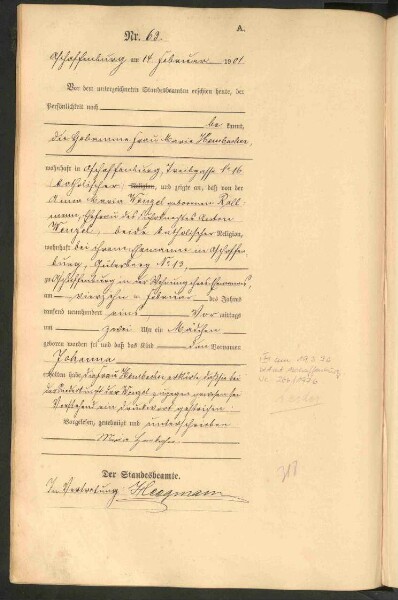 A.
Nr. 62
Aschaffenburg am 14 Februar 1901
Vor dem unterzeichneten Standesbeamten erschien heute, der
Persönlichkeit nach
be kannt,
die Hebamme Frau Maria Hembacher
wohnhaft in Aschaffenburg, Treibgasse No 16
katholischer Religion, und zeigte an, daß von der
Anna Maria Wenzel geborenen Roll
mann, Ehefrau des Anton
Wenzel, beide katholischer Religion,
wohnhaft bei ihrem Ehemanne in Aschaffen
burg, No 13,
zu Aschaffenburg in der Wohnung ihres Ehemannes
am vierzehn ten Februar des Jahres
tausend neunhundert eins, Vor mittags
um zwei Uhr ein Mädchen
geboren worden sei und daß das Kind den Vornamen
Johanna
erhalten habe, die Frau Hembacher erklärte, daß sie bei
der Niederkunft der Wenzel zugegen gewesen sei
Vorstehend ein Druckwort gestrichen.
Vorgelesen, genehmigt und unterschrieben
Maria Hembacher
Der Standesbeamte.
In Vertretung
am 19.3.36
Aschaffenburg
318